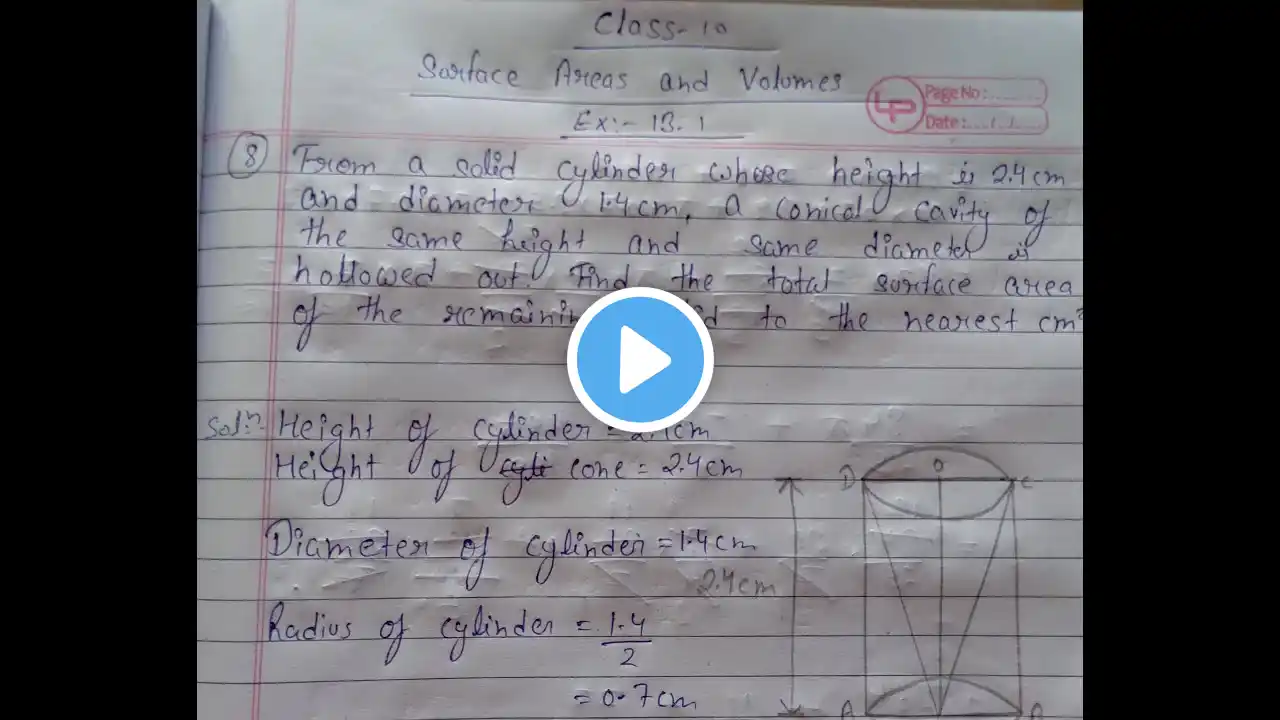 Class-10
Surface Areas and Volumes
Page No:
Date:
Ex:- 13.1
8 From a solid cylinder whose height is 2.4cm
and diameter 1.4cm, a conical cavity of
the same height and same diameter is
hollowed out. Find the total surface area
of the to the nearest cm²
Soln:- Height of cylinder =
Height of cone = 2.4cm
D O C
Diameter of cylinder = 1.4cm
2.4cm
Radius of cylinder = 1.4
2
= 0.7cm
A